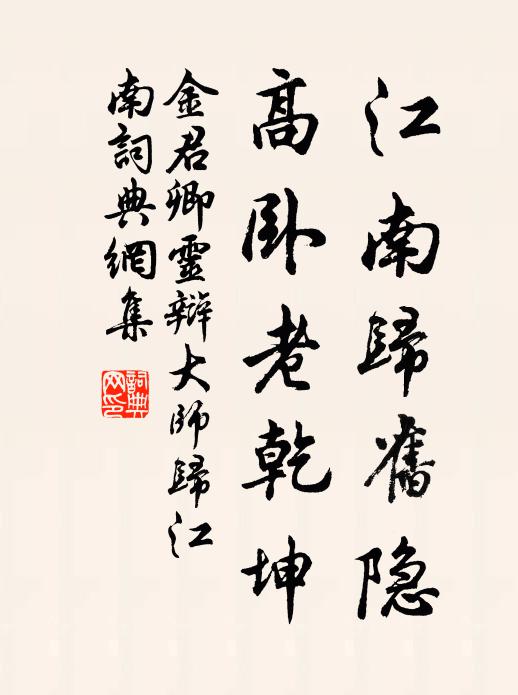 江南歸舊隐
高卧老乾坤
金君卿靈辯大师歸江
南詞典網集
詞典网印